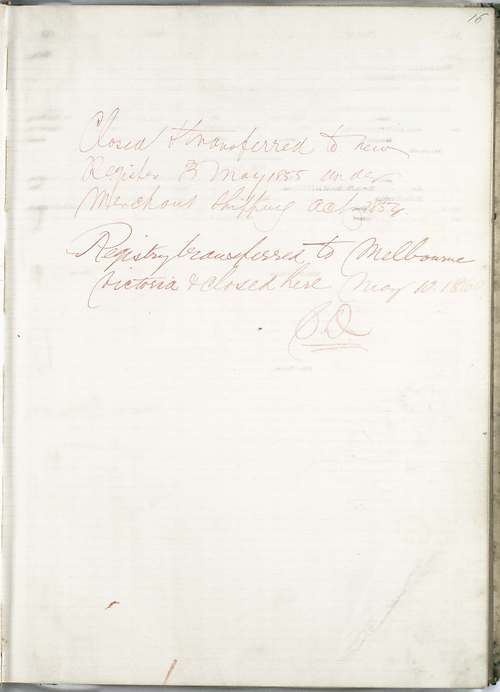 16
Closed & transferred to new
Register 3 May 1855 under
Merchant Shipping Act 1854
Registry transferred to Melbourne
Victoria & closed here May 10.